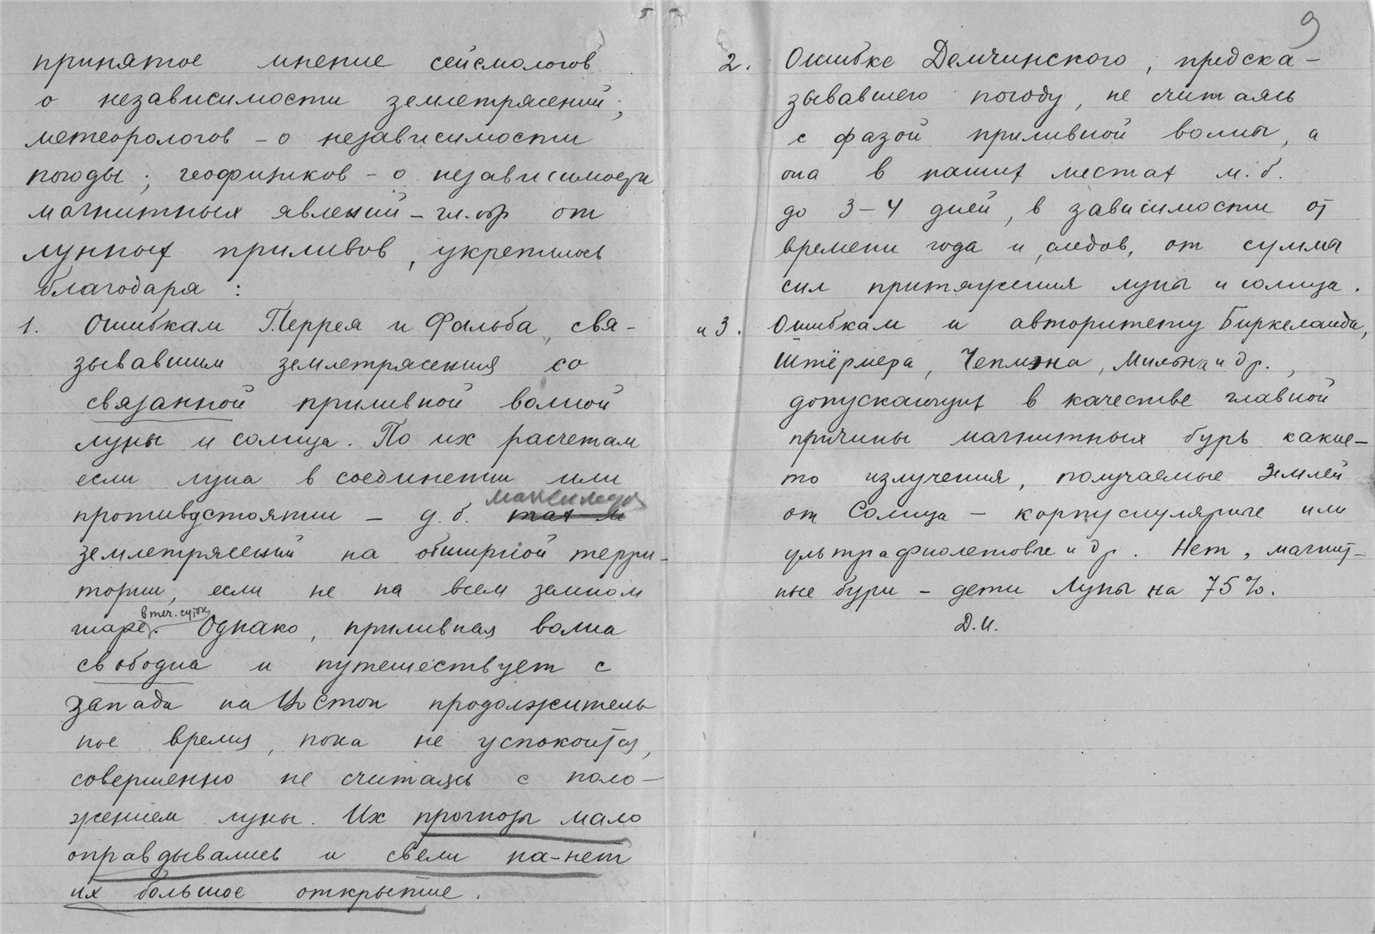 принятое мнение сейсмологов
о независимости землетрясений;
метеорологов – о независимости
погоды; геофизиков – о независимости
магнитных явлений – гл. обр от
лунных приливов, укрепилось
благодаря:
1. Ошибкам Перрея и Фальба, свя-
зывавшим землетрясения со
связанной приливной волной
луны и солнца. По их расчетам
если луна в соединении или
максимум
противустоянии – д.б.
землетрясений на обширной терри-
тории, если не на всем земном
в теч. суток
шаре. Однако, приливная волна
свободна и путешествует с
запада на Восток продолжитель
ное время, пока не успокоится,
совершенно не считаясь с поло-
жением луны. Их прогнозы мало
оправдывались и свели на-нет
их большое открытие.
9
2. Ошибке Демчинского, предска-
зывавшего погоду, не считаясь
с фазой приливной волны, а
она в наших местах м.б.
до 3–4 дней, в зависимости от
времени года и, следов, от суммы
сил притяжения луны и солнца.
и 3. Ошибкам и авторитету Биркеланда,
Штёрмера, Чепмэна, Мильна и др.,
допускающих в качестве главной
причины магнитных бурь какие-
то излучения, получаемые Землей
от Солнца – корпускулярные или
ультрафиолетовые и др. Нет, магнит-
ные бури – дети Луны на 75%.
Д.И.